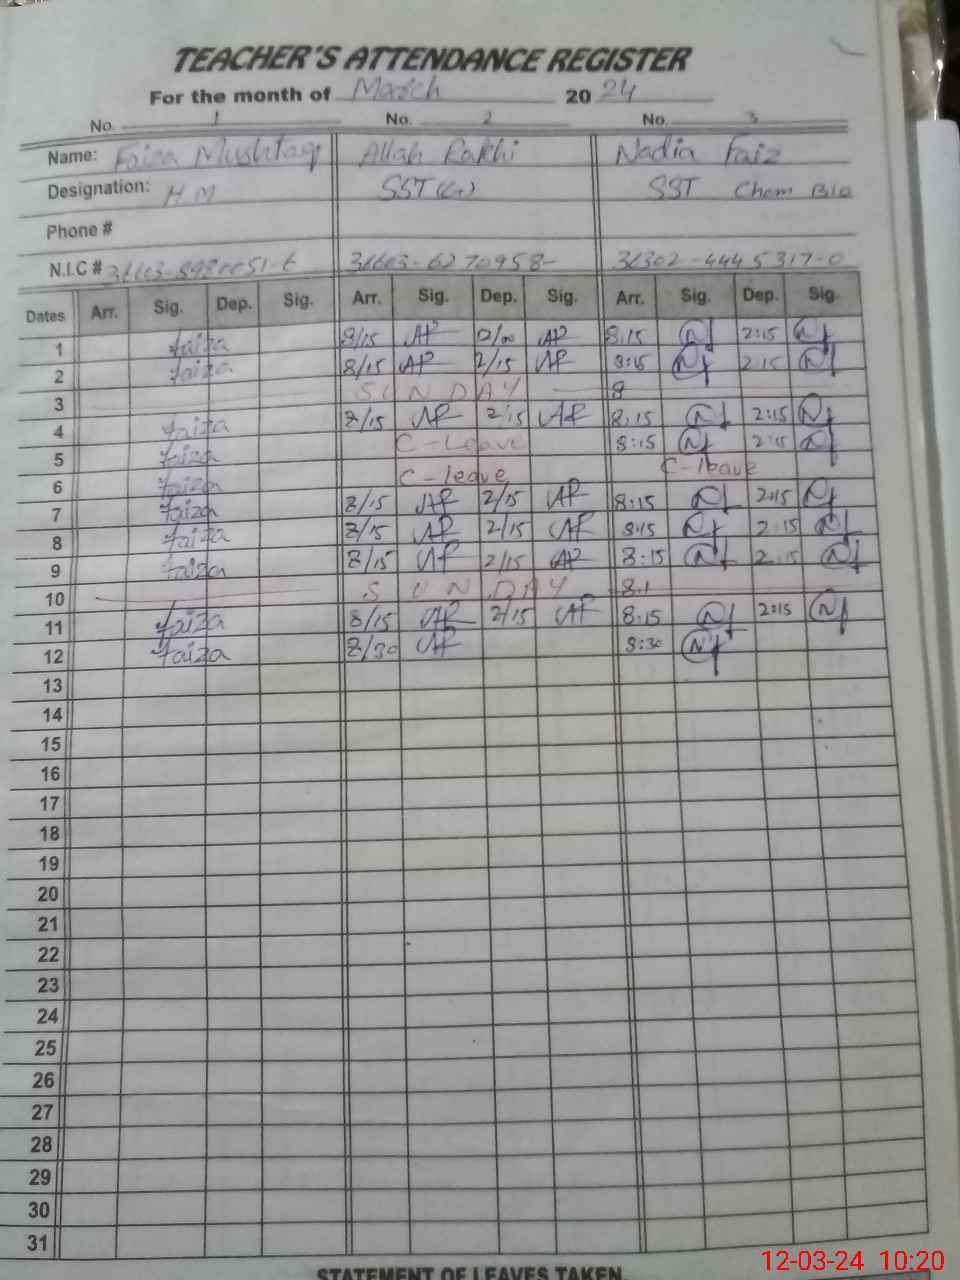 TEACHER'S ATTENDANCE REGISTER
For the month of March 2024
No. 1 No. 2 No. 3
Name: Faiza Mushtaq Allah Rakhi Nadia Faiz
Designation: HM SST SST Chem Bio
Phone #
N.I.C # 36603-6270958- 36302-4445317-0
Dates Arr. Sig. Dep. Sig. Arr. Sig. Dep. Sig. Arr. Sig. Dep. Sig.
1 faiza 8/15 AR AR 8:15 Nf 2:15 Nf
2 faiza 8/15 AR 2/15 AR 8:15 Nf 2:15 Nf
3 SUNDAY 8
4 faiza 8/15 AR 2/15 AR 8:15 Nf 2:15 Nf
5 faiza C-Leave 8:15 Nf 2:15 Nf
6 faiza C-leave C-leave
7 faiza 8/15 AR 2/15 AR 8:15 Nf 2:15 Nf
8 faiza 8/15 AR 2/15 AR 8:15 Nf 2:15 Nf
9 faiza 8/15 AR 2/15 AR 8:15 Nf 2:15 Nf
10 SUNDAY 8.1
11 faiza 8/15 AR 2/15 AR 8:15 Nf 2:15 Nf
12 faiza 8/30 AR 8:30 Nf
13
14
15
16
17
18
19
20
21
22
23
24
25
26
27
28
29
30
31
STATEMENT OF LEAVES TAKEN
12-03-24 10:20